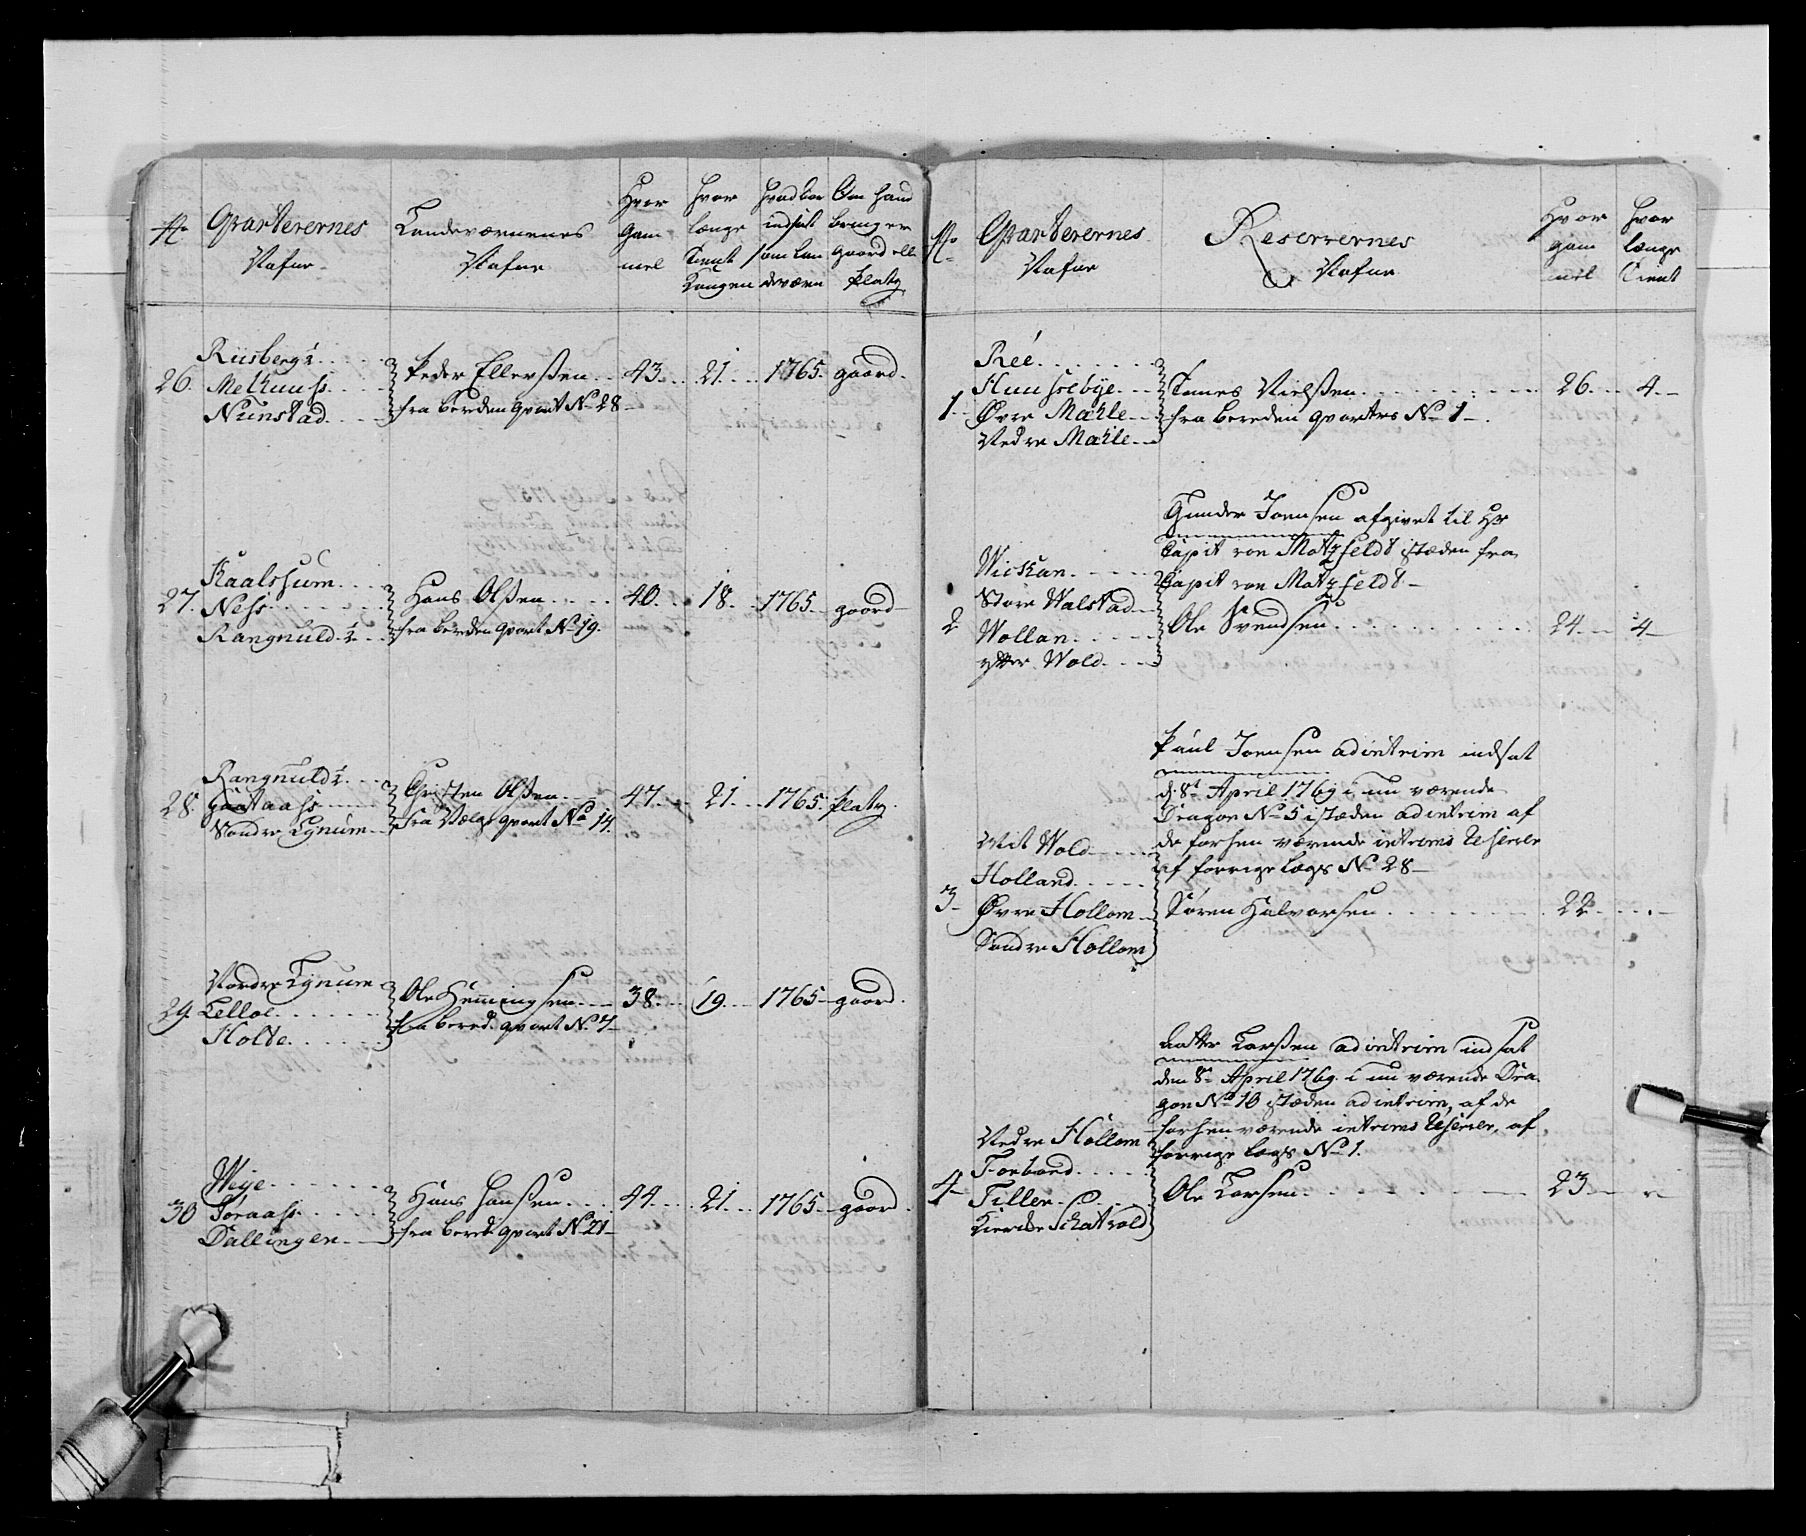 No
Qvarterernes
Nafne
Landeværnenes
Nafne
Hvor
gam
mel
hvor
længe
tient
Kongen
hvad tiid
indsat
som lan
deværn
Om hand
bringer
gaard ell
platz
26.
Riisberg ½
Melhuuss
Nunstad
Peder Ellerssen
fra bereden qvart No 28
43
21
1765
gaard
27.
Kaalssum
Ness
Rangnuld ½
Hans Olssen
fra bereden qvart No 19.
40
18
1765
gaard
28.
Rangnuld ½
Sondre Lynum
Christen Olssen
fra qvart No 14.
47
21
1765
platz
29.
Nordre Lynum
Lelloe
Holte
Ole Hemmingsen
fra bered. qvart No 7
38
19
1765
gaard
30
Weye
Toraass
Dallingen
Hans Hanssen
fra bered qvart No 21
44
21
1765
gaard
No
Qvarterernes
Nafne
Reserrernes
Nafne
Hvor
gam
mel
hvor
længe
tient
1
Reé
Huussebye
Øvre Mæhle
Nedre Mæhle
Nielssen
fra bereden qvarters No 1
26
4
2
Wickan
Store Walstad
Wollan
ytter Wold
Gunder Joensen afgivet til Hr
Capit von Motzfeldt isteden fra
Capit von Motzfeldt
Ole Svendsen
24
4
3
Mit Wold
Holland
Øvre Hollom
Sondre Hollom
Paul Joensen ad interim indsat
d: 8de April 1769 i nu værende
Dragon No 5 isteden ad interim af
de forhen værende interims Reserver
af forrige lægs No 28
Søren Halvorsen
22
4
Nedre Hollom
Forbord
Tiller
Schatvold
Larssen ad interim indsat
den 8de April 1769. i nu værende Dra
gon No 10 isteden ad interim, af de
forhen værende interims Reserver, af
forrige lægs No 1.
Ole Larsen
23